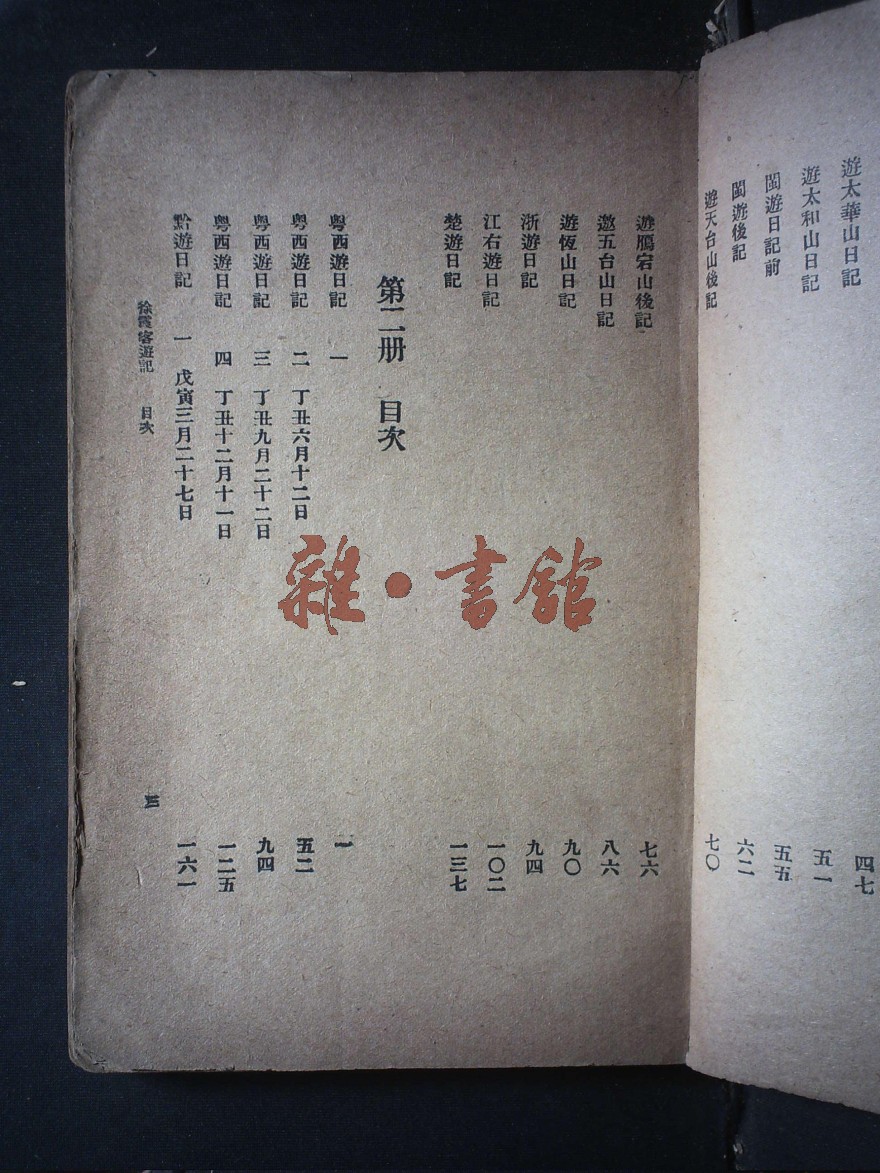 遊太華山日記 四七
遊太和山日記 五一
閩遊日記前 五五
閩遊後記 六二
遊天台山後記 七〇
遊鴈宕山後記 七六
遊五台山日記 八六
遊恆山日記 九〇
浙遊日記 九四
江右遊日記 一〇二
楚遊日記 一三七
第二册 目次
粵西遊日記 一 一
粵西遊日記 二 丁丑六月十二日 五二
粵西遊日記 三 丁丑九月二十二日 九四
粵西遊日記 四 丁丑十二月十一日 一二五
黔遊日記 一 戊寅三月二十七日 一六一
徐霞客遊記 目次 三
雜·書館